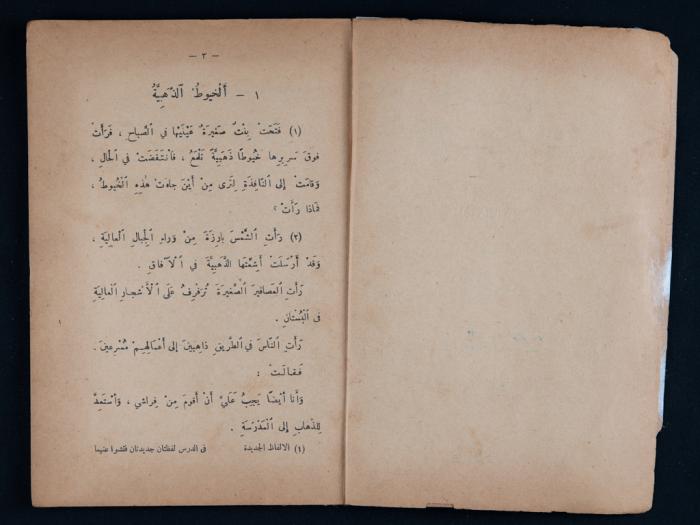 — ٣ —
١ – أَلْخيوطُ الذَّهَبِيَّةُ
(١) فَتَحَتْ بِنْتٌ صَغيرَةٌ عَيْنَيْها في الصَّباحِ ، فَرَأَتْ
فوقَ سَريرِها خُيُوطًا ذَهَبِيَّةً تَلْمَعُ ، فَانْتَفَضَتْ في الحَالِ ،
وَقامَتْ إلى النَّافِذَةِ لِتَرى مِنْ أَيْنَ جاءَتْ هٰذِهِ الْخُيوطُ ،
فَماذا رَأَتْ ؟
(٢) رَأَتِ الشَّمْسَ بارِزَةً مِنْ وَراءِ الجِبالِ الْعالِيَةِ ،
وَقَدْ أَرْسَلَتْ أَشِعَّتَها الذَّهَبِيَّةَ في الْآفاقِ .
رَأَتِ العَصافيرَ الصَّغيرَةَ تُرَفْرِفُ عَلَى الْأَشجارِ الْعالِيَةِ
في الْبُسْتانِ .
رَأَتِ النَّاسَ في الطَّريقِ ذاهِبينَ إلى أَعْمالِهِمْ مُسْرِعينَ .
فَقالَتْ :
وَأَنا أَيْضًا يَجِبُ عَلَيَّ أَنْ أَقومَ مِنْ فِراشي ، وَأَسْتَعِدَّ
لِلذَّهابِ إلى الْمَدْرَسَةِ .
(١) الالفاظ الجديدة في الدرس لفظتان جديدتان فتشوا عنهما